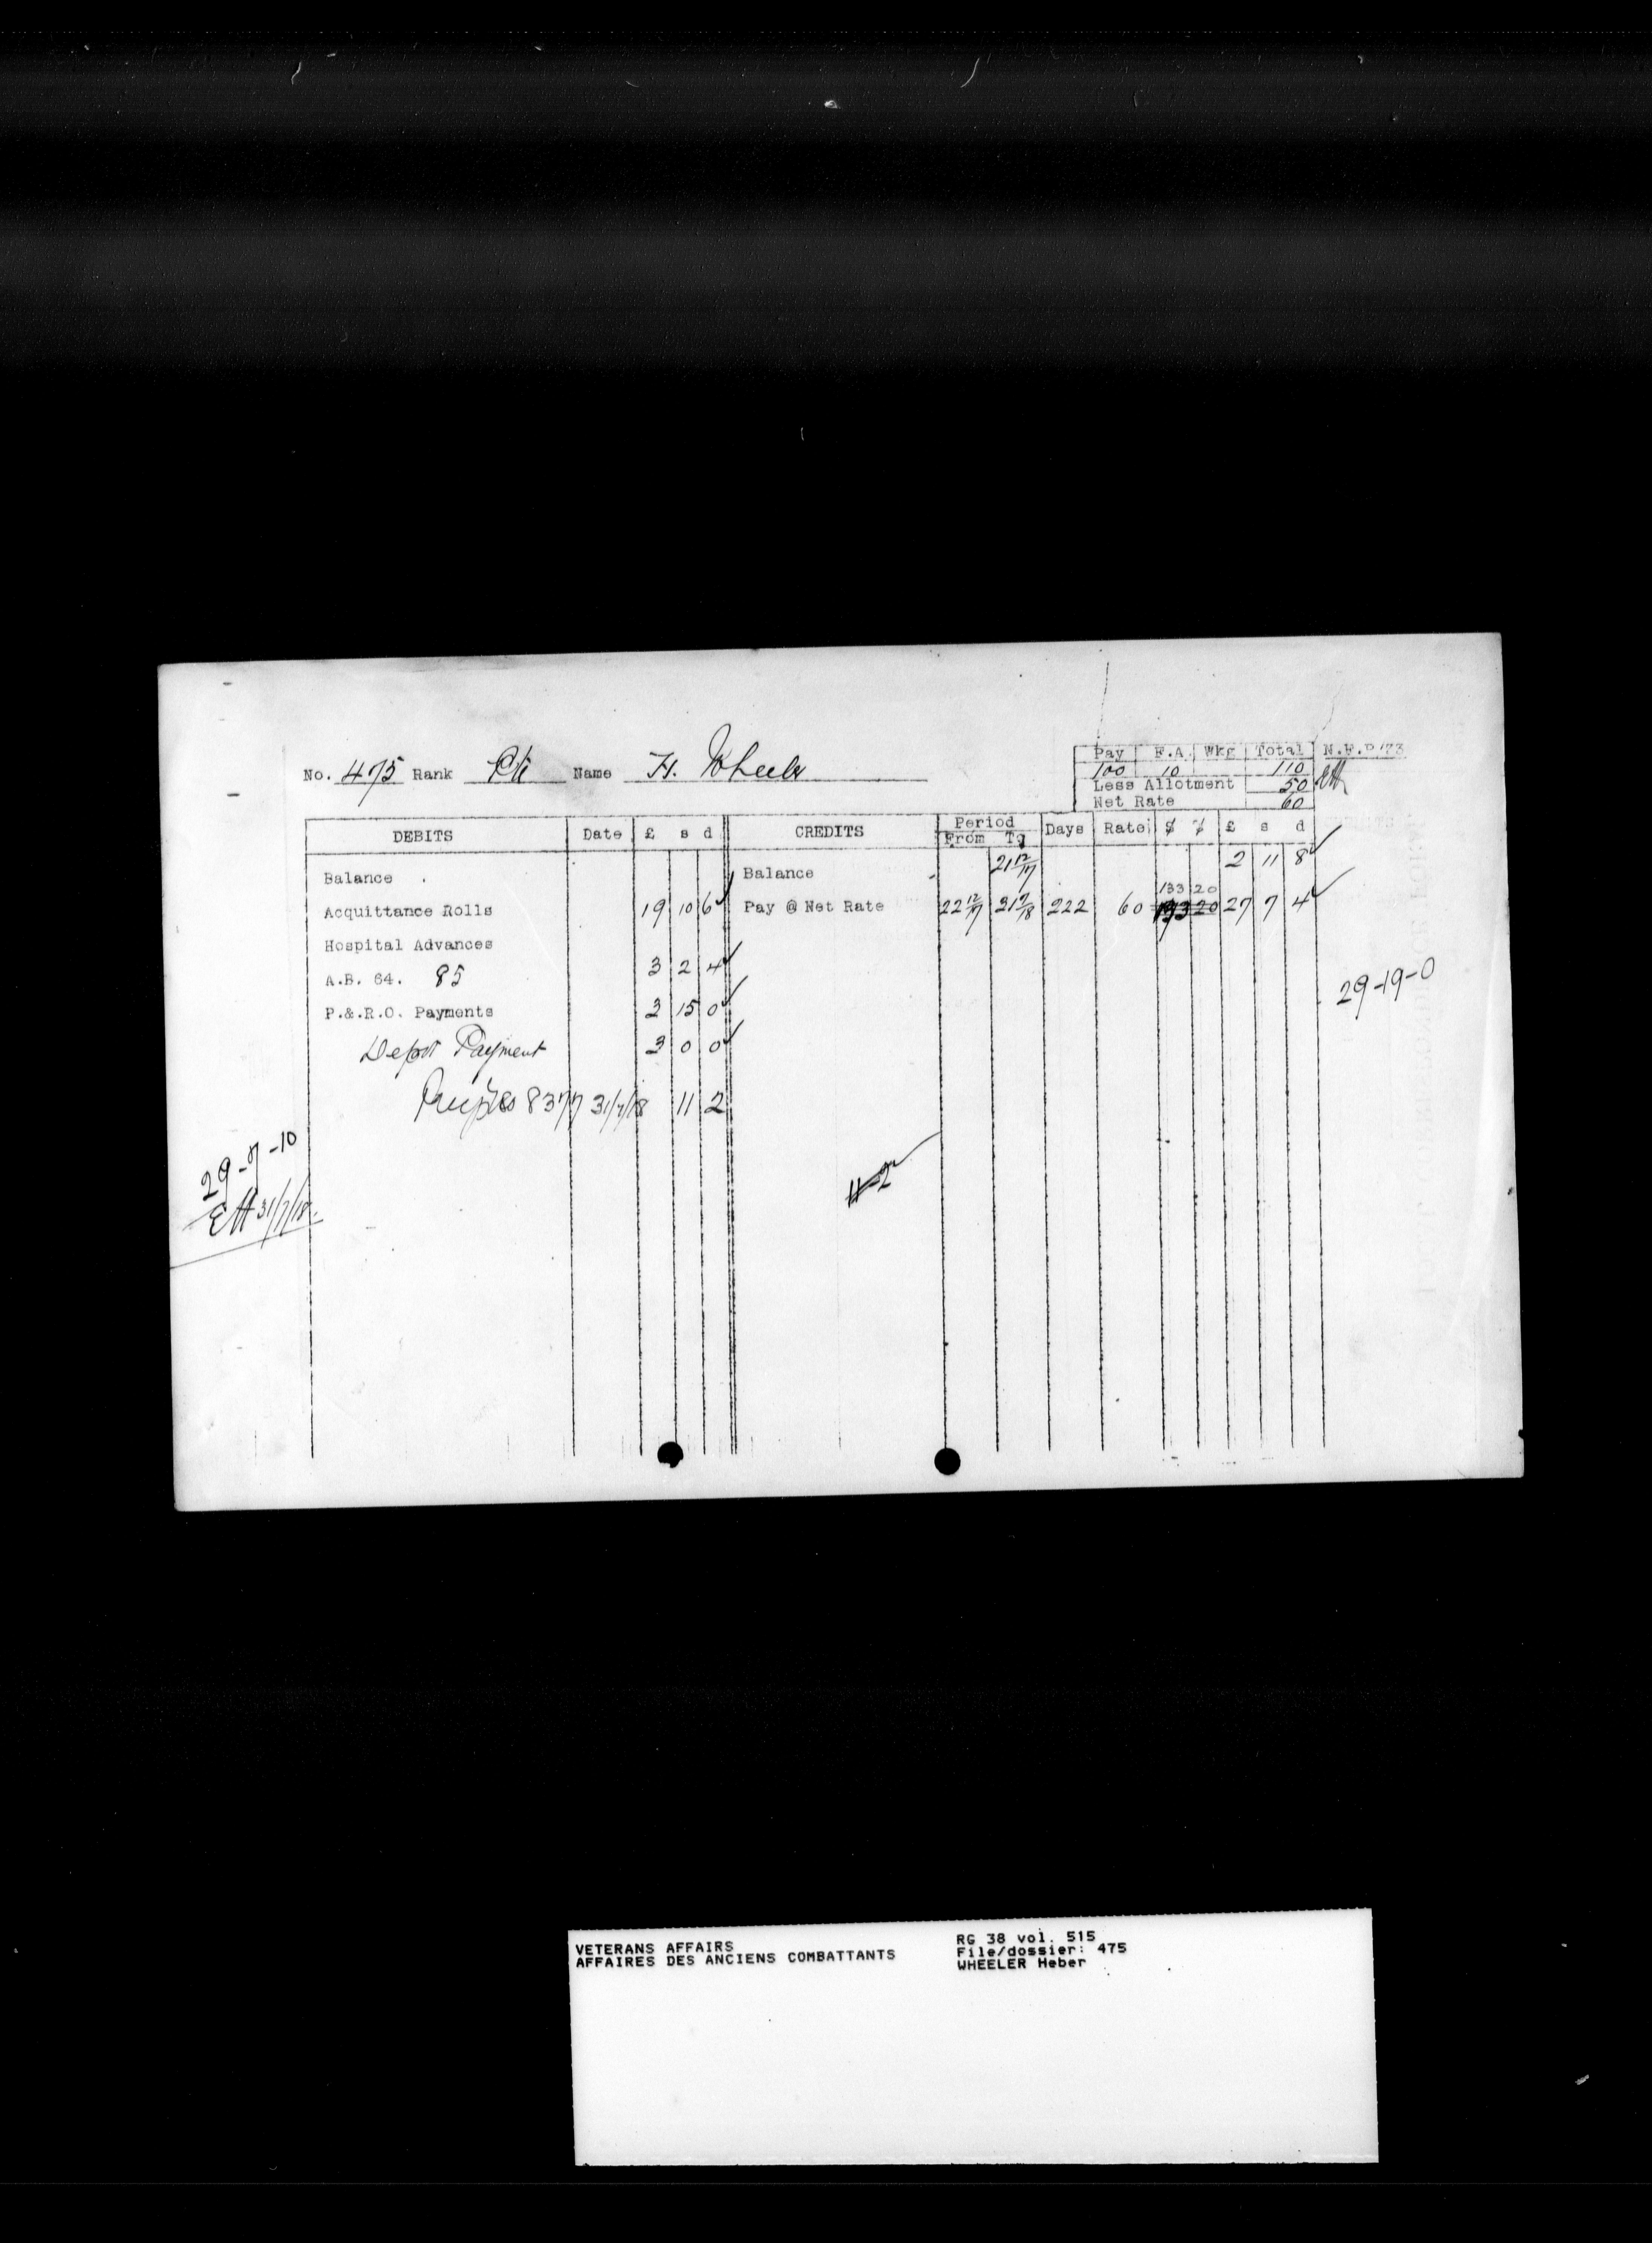 No. 475 Rank Pte Name H. Wheeler
Pay F.A. Wkg Total N.F.P/73
100 10 110
Less Allotment 50
Net Rate 60
DEBITS Date £ s d CREDITS Period From To Days Rate $ ¢ £ s d
Balance . Balance 21 12/17 2 11 8
133 20
Acquittance Rolls 19 10 6 Pay @ Net Rate 22 12/17 31 7/18 222 60 193 20 27 7 4
Hospital Advances
A.B. 64. 85 3 2 4
29-19-0
P.&.R.O. Payments 3 15 0
Depot Payment 3 0 0
8377 31/7/18 11 2
29-7-10
11-2
EH 31/7/18.
VETERANS AFFAIRS
AFFAIRES DES ANCIENS COMBATTANTS
RG 38 vol. 515
File/dossier: 475
WHEELER Heber